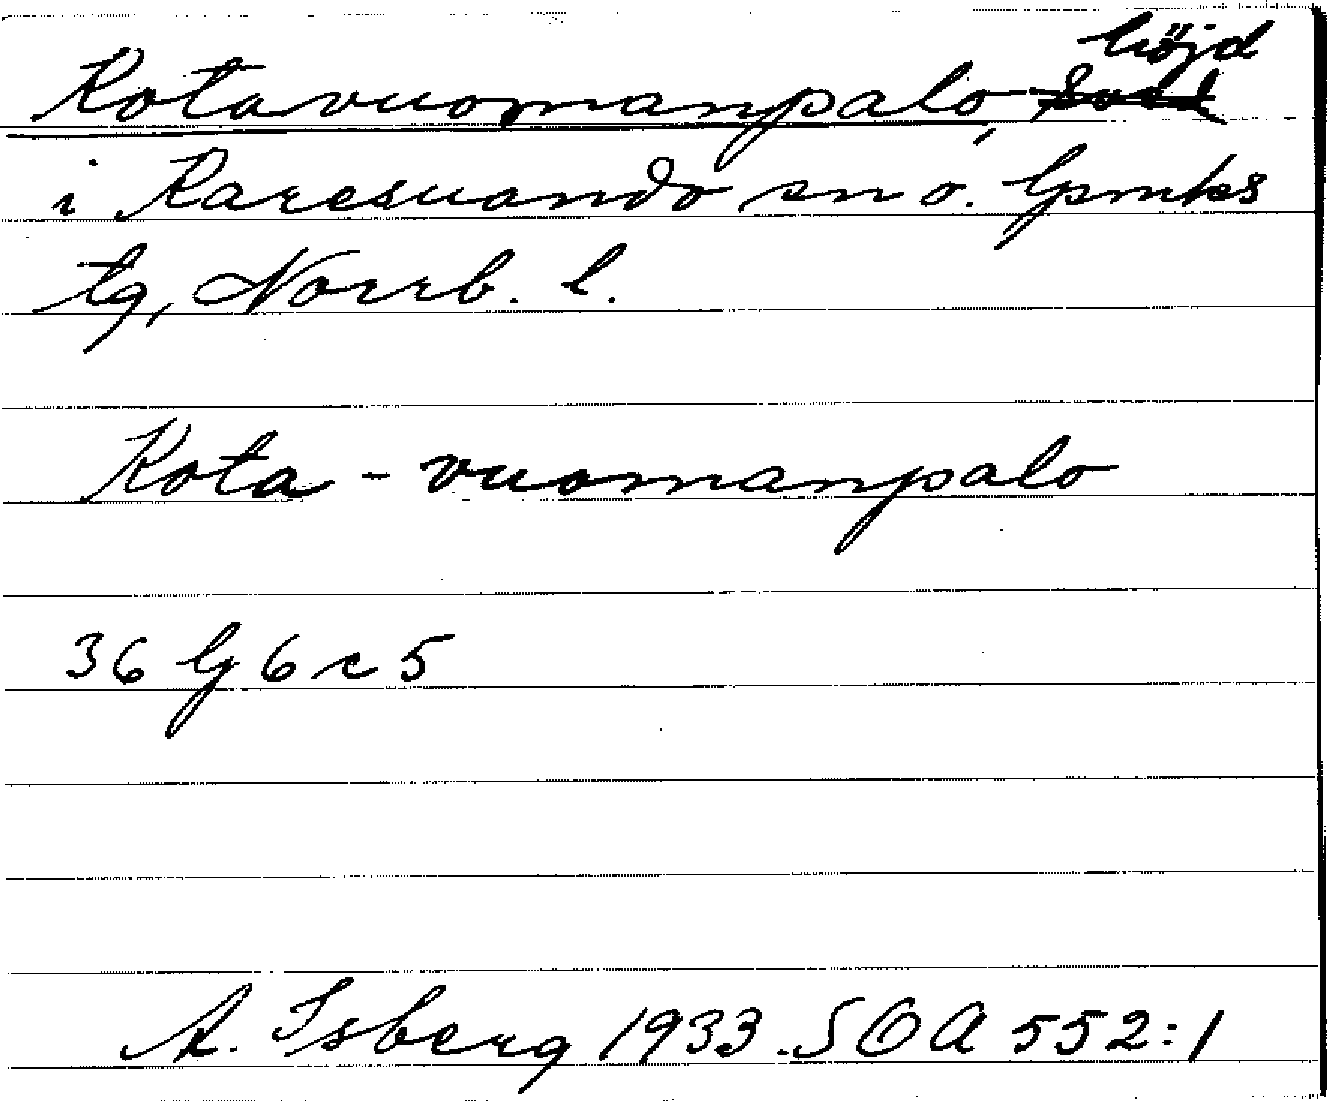 Kotavuomanpalo, höjd
i Karesuando sn o. lpmks
tg, Norrb. l.
Kota - vuomanpalo
36 lj 6 c 5
A. Isberg 1933. SOA 552:1